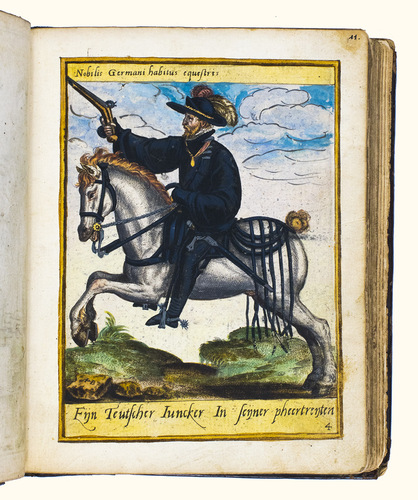 11.
Nobilis Germani habitus equestris
Eijn Teutscher Iuncker In seijner pheertreijten
4